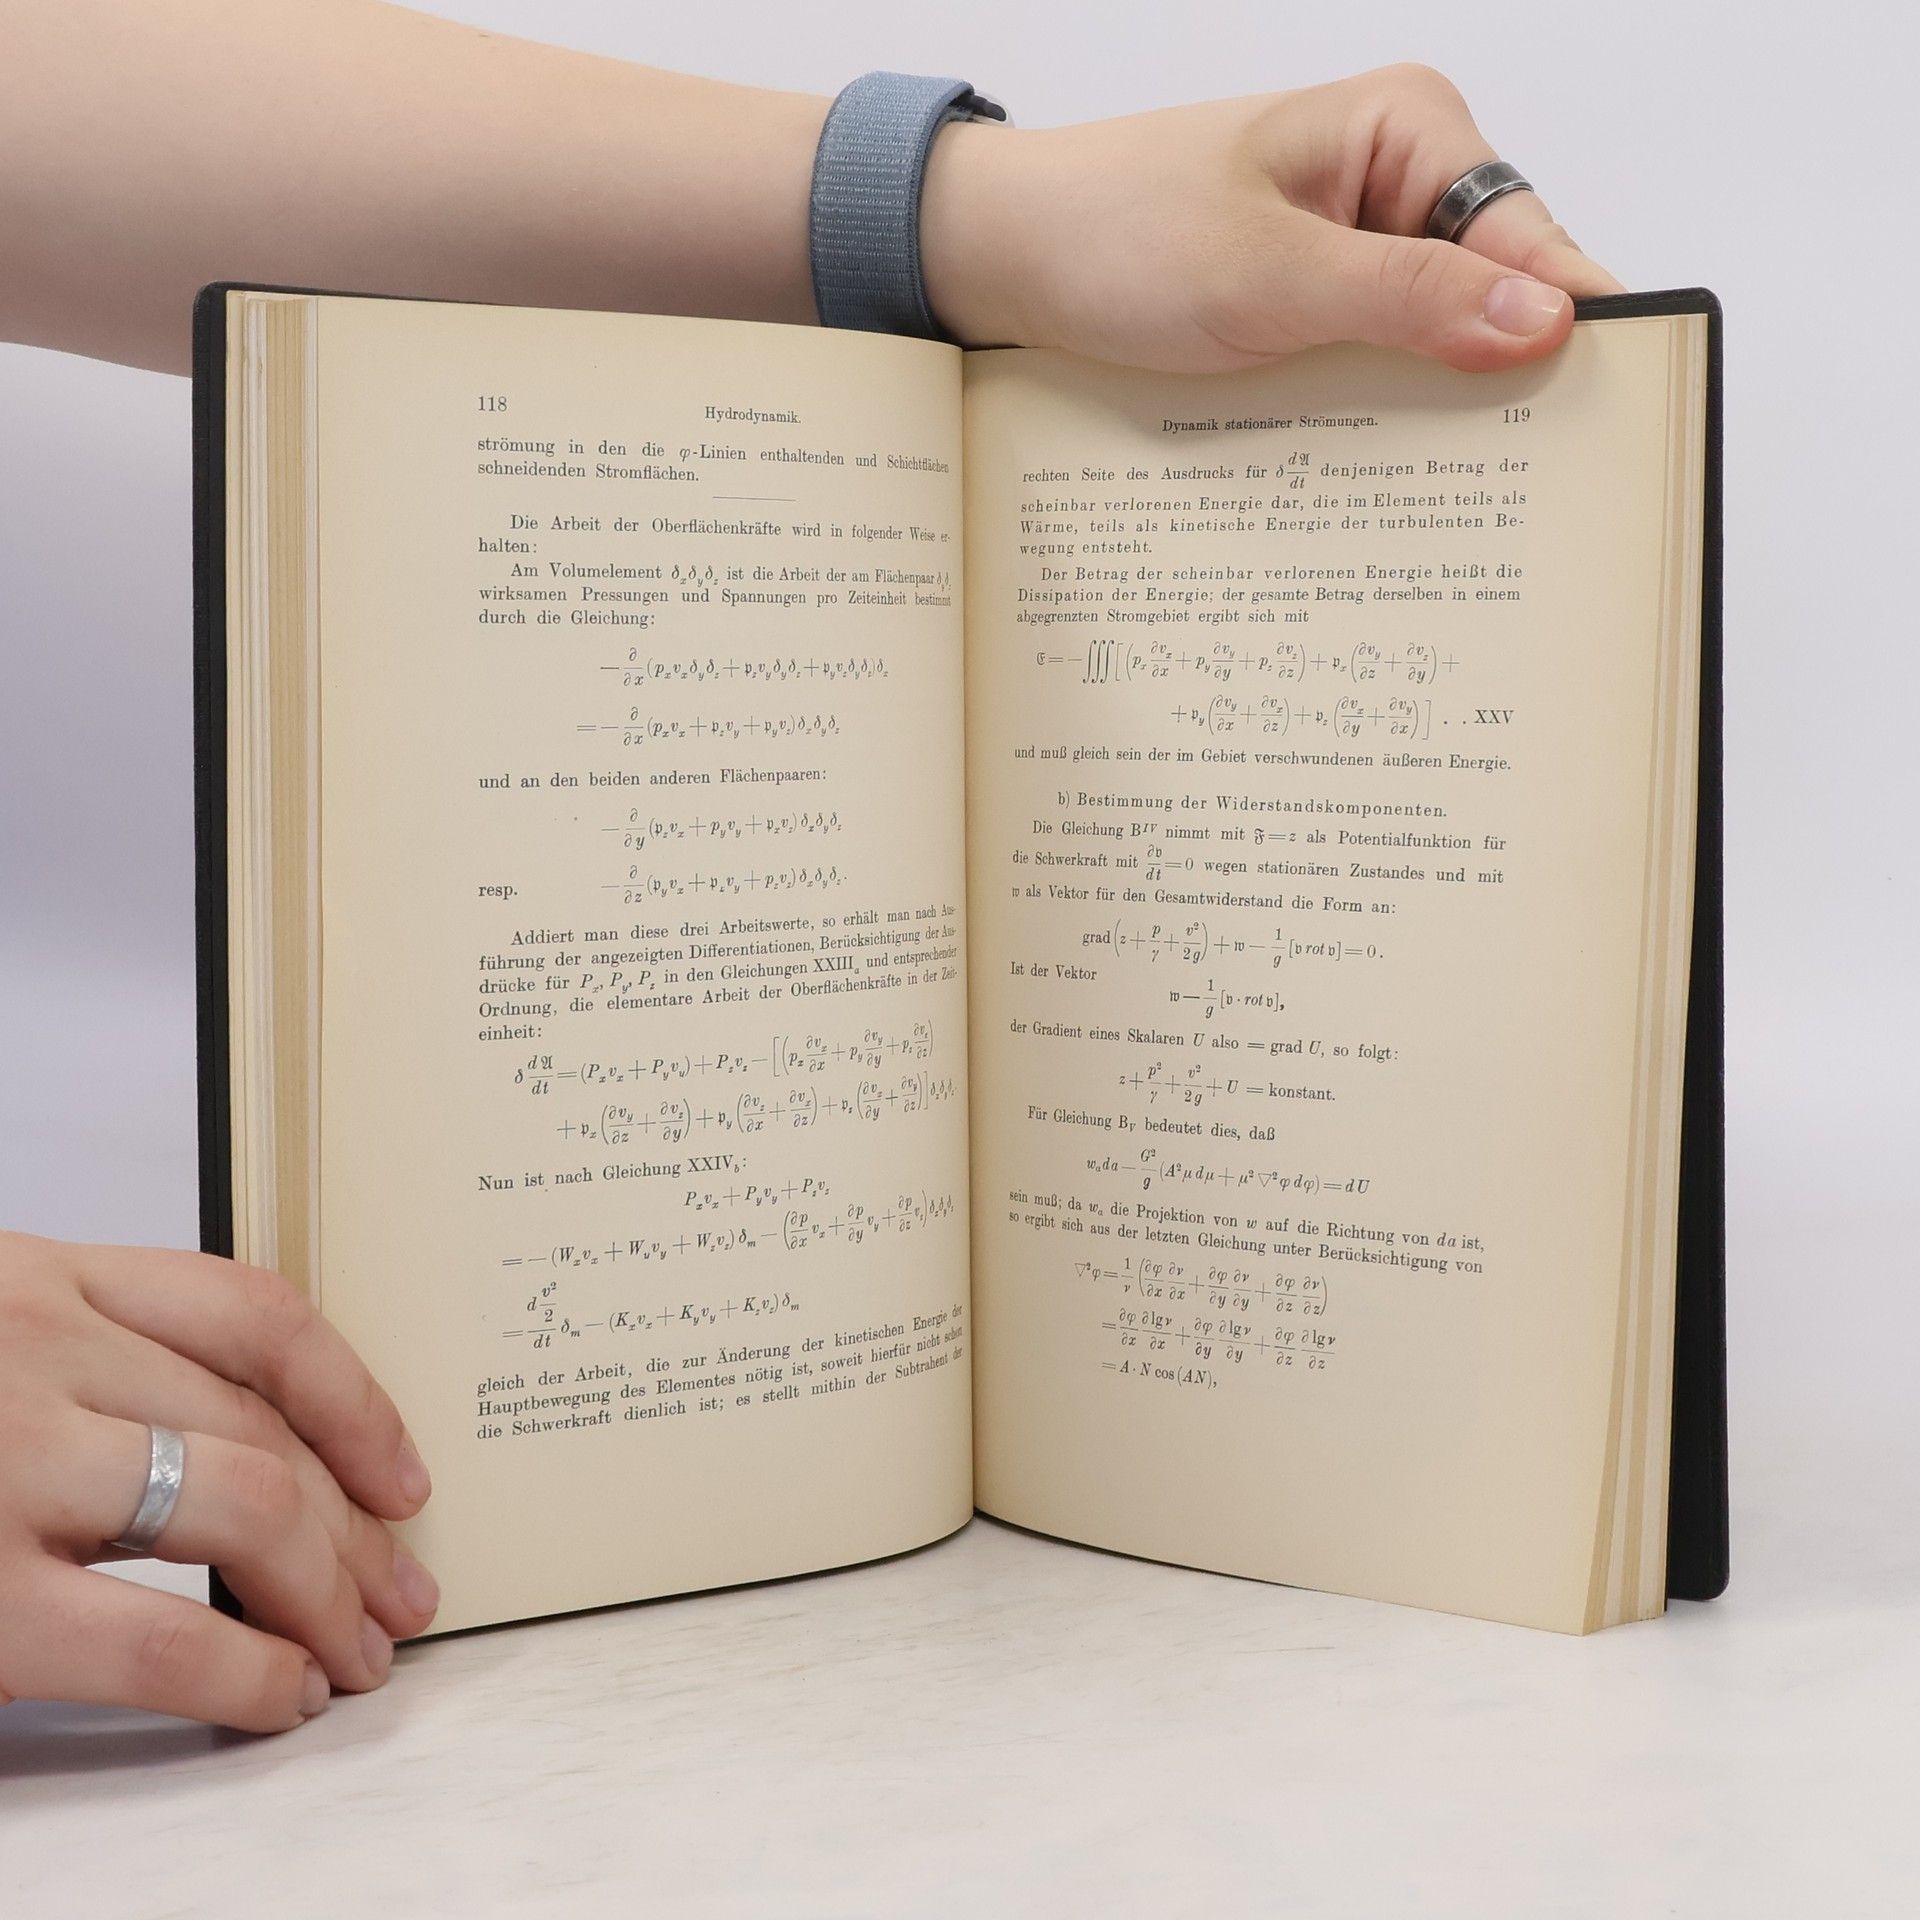 118
Hydrodynamik.
strömung in den die φ-Linien enthaltenden und Schichtflächen
schneidenden Stromflächen.
Die Arbeit der Oberflächenkräfte wird in folgender Weise er-
halten:
Am Volumelement δ_xδ_yδ_z ist die Arbeit der am Flächenpaar δ_yδ_z
wirksamen Pressungen und Spannungen pro Zeiteinheit bestimmt
durch die Gleichung:
−∂/∂x (p_xv_xδ_yδ_z + 𝔭_zv_yδ_yδ_z + 𝔭_yv_zδ_yδ_z)δ_x
= −∂/∂x (p_xv_x + 𝔭_zv_y + 𝔭_yv_z)δ_xδ_yδ_z
und an den beiden anderen Flächenpaaren:
−∂/∂y (𝔭_zv_x + p_yv_y + 𝔭_xv_z)δ_xδ_yδ_z
resp. −∂/∂z (𝔭_yv_x + 𝔭_xv_y + p_zv_z)δ_xδ_yδ_z.
Addiert man diese drei Arbeitswerte, so erhält man nach Aus-
führung der angezeigten Differentiationen, Berücksichtigung der Aus-
drücke für P_x, P_y, P_z in den Gleichungen XXIII_a und entsprechender
Ordnung, die elementare Arbeit der Oberflächenkräfte in der Zeit-
einheit:
δ d𝔄/dt = (P_xv_x + P_yv_y) + P_zv_z − [(p_x ∂v_x/∂x + p_y ∂v_y/∂y + p_z ∂v_z/∂z)
+ 𝔭_x(∂v_y/∂z + ∂v_z/∂y) + 𝔭_y(∂v_z/∂x + ∂v_x/∂z) + 𝔭_z(∂v_x/∂y + ∂v_y/∂z)]δ_xδ_yδ_z.
Nun ist nach Gleichung XXIV_b:
P_xv_x + P_yv_y + P_zv_z
= −(W_xv_x + W_yv_y + W_zv_z)δ_m − (∂p/∂x v_x + ∂p/∂y v_y + ∂p/∂z v_z)δ_xδ_yδ_z
= d(v²/2)/dt δ_m − (K_xv_x + K_yv_y + K_zv_z)δ_m
gleich der Arbeit, die zur Änderung der kinetischen Energie der
Hauptbewegung des Elementes nötig ist, soweit hierfür nicht schon
die Schwerkraft dienlich ist; es stellt mithin der Subtrahent der
Dynamik stationärer Strömungen.
119
rechten Seite des Ausdrucks für δ d𝔄/dt denjenigen Betrag der
scheinbar verlorenen Energie dar, die im Element teils als
Wärme, teils als kinetische Energie der turbulenten Be-
wegung entsteht.
Der Betrag der scheinbar verlorenen Energie heißt die
Dissipation der Energie; der gesamte Betrag derselben in einem
abgegrenzten Stromgebiet ergibt sich mit
𝔈 = −∭[(p_x ∂v_x/∂x + p_y ∂v_y/∂y + p_z ∂v_z/∂z) + 𝔭_x(∂v_y/∂z + ∂v_z/∂y) +
+ 𝔭_y(∂v_y/∂x + ∂v_x/∂z) + 𝔭_z(∂v_x/∂y + ∂v_y/∂x)] . . XXV
und muß gleich sein der im Gebiet verschwundenen äußeren Energie.
b) Bestimmung der Widerstandskomponenten.
Die Gleichung B^IV nimmt mit 𝔉 = z als Potentialfunktion für
die Schwerkraft mit ∂𝔳/dt = 0 wegen stationären Zustandes und mit
𝔴 als Vektor für den Gesamtwiderstand die Form an:
grad(z + p/γ + v²/2g) + 𝔴 − 1/g [𝔳 rot 𝔳] = 0.
Ist der Vektor
𝔴 − 1/g [𝔳 · rot 𝔳],
der Gradient eines Skalaren U also = grad U, so folgt:
z + p²/γ + v²/2g + U = konstant.
Für Gleichung B_V bedeutet dies, daß
w_a da − G²/g (A²μ dμ + μ² ▽²φ dφ) = dU
sein muß; da w_a die Projektion von w auf die Richtung von da ist,
so ergibt sich aus der letzten Gleichung unter Berücksichtigung von
▽²φ = 1/ν (∂φ/∂x ∂ν/∂x + ∂φ/∂y ∂ν/∂y + ∂φ/∂z ∂ν/∂z)
= ∂φ/∂x ∂lgν/∂x + ∂φ/∂y ∂lgν/∂y + ∂φ/∂z ∂lgν/∂z
= A · N cos (AN),